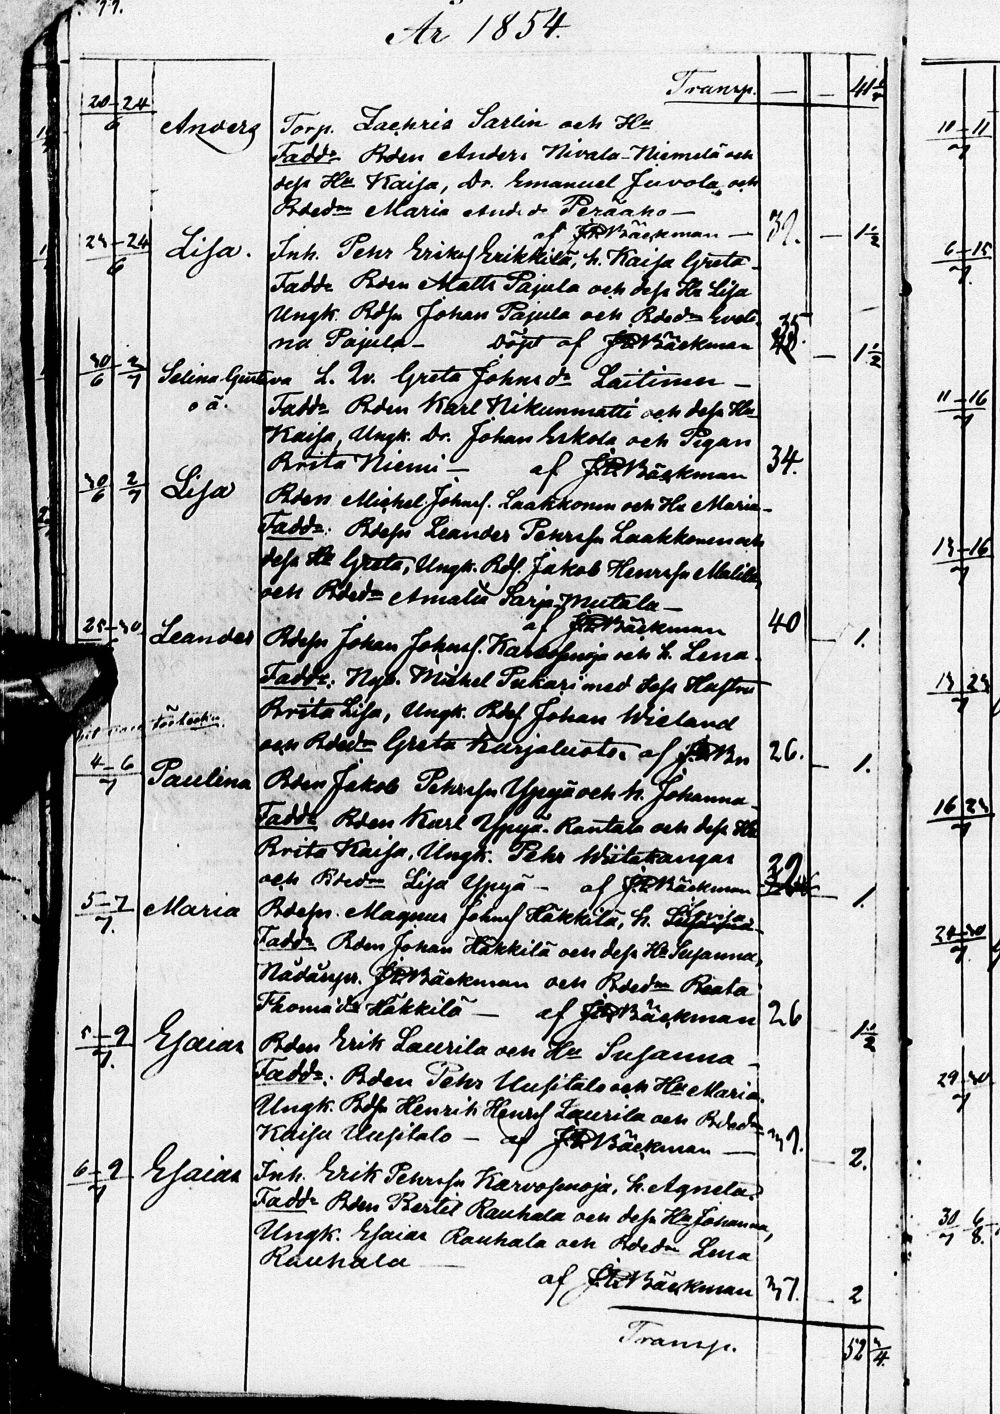 77.
År 1854.
Transp. — — 41 1/2
20–24/6 Anders Torp. Zachris Sarlin och Hu
Fadd: Bden Anders Nivala-Niemelä och
dess Hu Kaisa, Dr. Emanuel Juvola och
Bded: Maria And. d: Peräaho —
af J.P. Bäckman — 39. — 1 1/2
23–24/6 Lisa. Inh. Pehr Eriks. Erikkilä, h. Kaisa Greta
Fadd: Bden Matts Pajula och dess Hu Lisa
Ungk. Bds: Johan Pajula och Bded: Eveli-
na Pajula — Döpt af J.P. Bäckman 35. — 1 1/2
30/6 2/7 Selina Gustava L. Qv. Greta Johns d: Laitinen —
o ä. Fadd: Bden Karl Nikunmatti och dess Hu
Kaisa, Ungk. Dr. Johan Eskola och Pigan
Brita Niemi — af J.P. Bäckman 34.
30/6 2/7 Lisa Bden Michel Johns. Laakkonen och Hu Maria
Fadd: Bdesn Leander Pehrssn Laakkonen och
dess Hu Greta, Ungk. Bds. Jakob Henrssn
och Bded: Amalia Sarja-Mutala —
af J.P. Bäckman 40 — 1.
25–30 Leander Bdesn Johan Johns. Karvosenoja och h. Lena
Fadd: Nyb. Michel Pukari med dess Hustru
Brita Lisa, Ungk. Bds Johan Wieland
och Bded: Greta Kurjaluoto. af J.P. Bn 26. — 1.
4–6/7 Paulina Bden Jakob Pehrssn Ypyä och h. Johanna
Fadd: Bden Karl Ypyä-Rantala och dess Hu
Brita Kaisa, Ungk. Pehr Wiitakangas
och Bded: Lisa Ypyä — af J.P. Bäckman 32 — 1.
5–7/7. Maria Bdesn. Magnus Johns Häkkilä, h. Lovisa
Fadd: Bden Johan Häkkilä och dess Hu Susanna,
Nådårspr. J.P. Bäckman och Bded: Beata
Thomæ d: Häkkilä — af J.P. Bäckman 26 — 1 1/2
5–9/7. Esaias Bden Erik Laurila och Hu Susanna —
Fadd: Bden Pehr Uusitalo och Hu Maria.
Ungk. Bds: Henrik Henrs Laurila och Bded:
Kaisa Uusitalo — af J.P. Bäckman — 39. — 2.
6–9/7 Esaias Inh. Erik Pehrssn Karvosenoja, h. Agneta
Fadd: Bden Bertil Rauhala och dess Hu Johanna,
Ungk. Esaias Rauhala och Bded: Lena
Rauhala —
af J.P. Bäckman 37. — 2
Transp. 52 3/4.
11–11/7
6–15/7.
11–16/7
13–16/7
13 23/7
16 23/7
24–30/7
29–30/7
30/7 6/8.